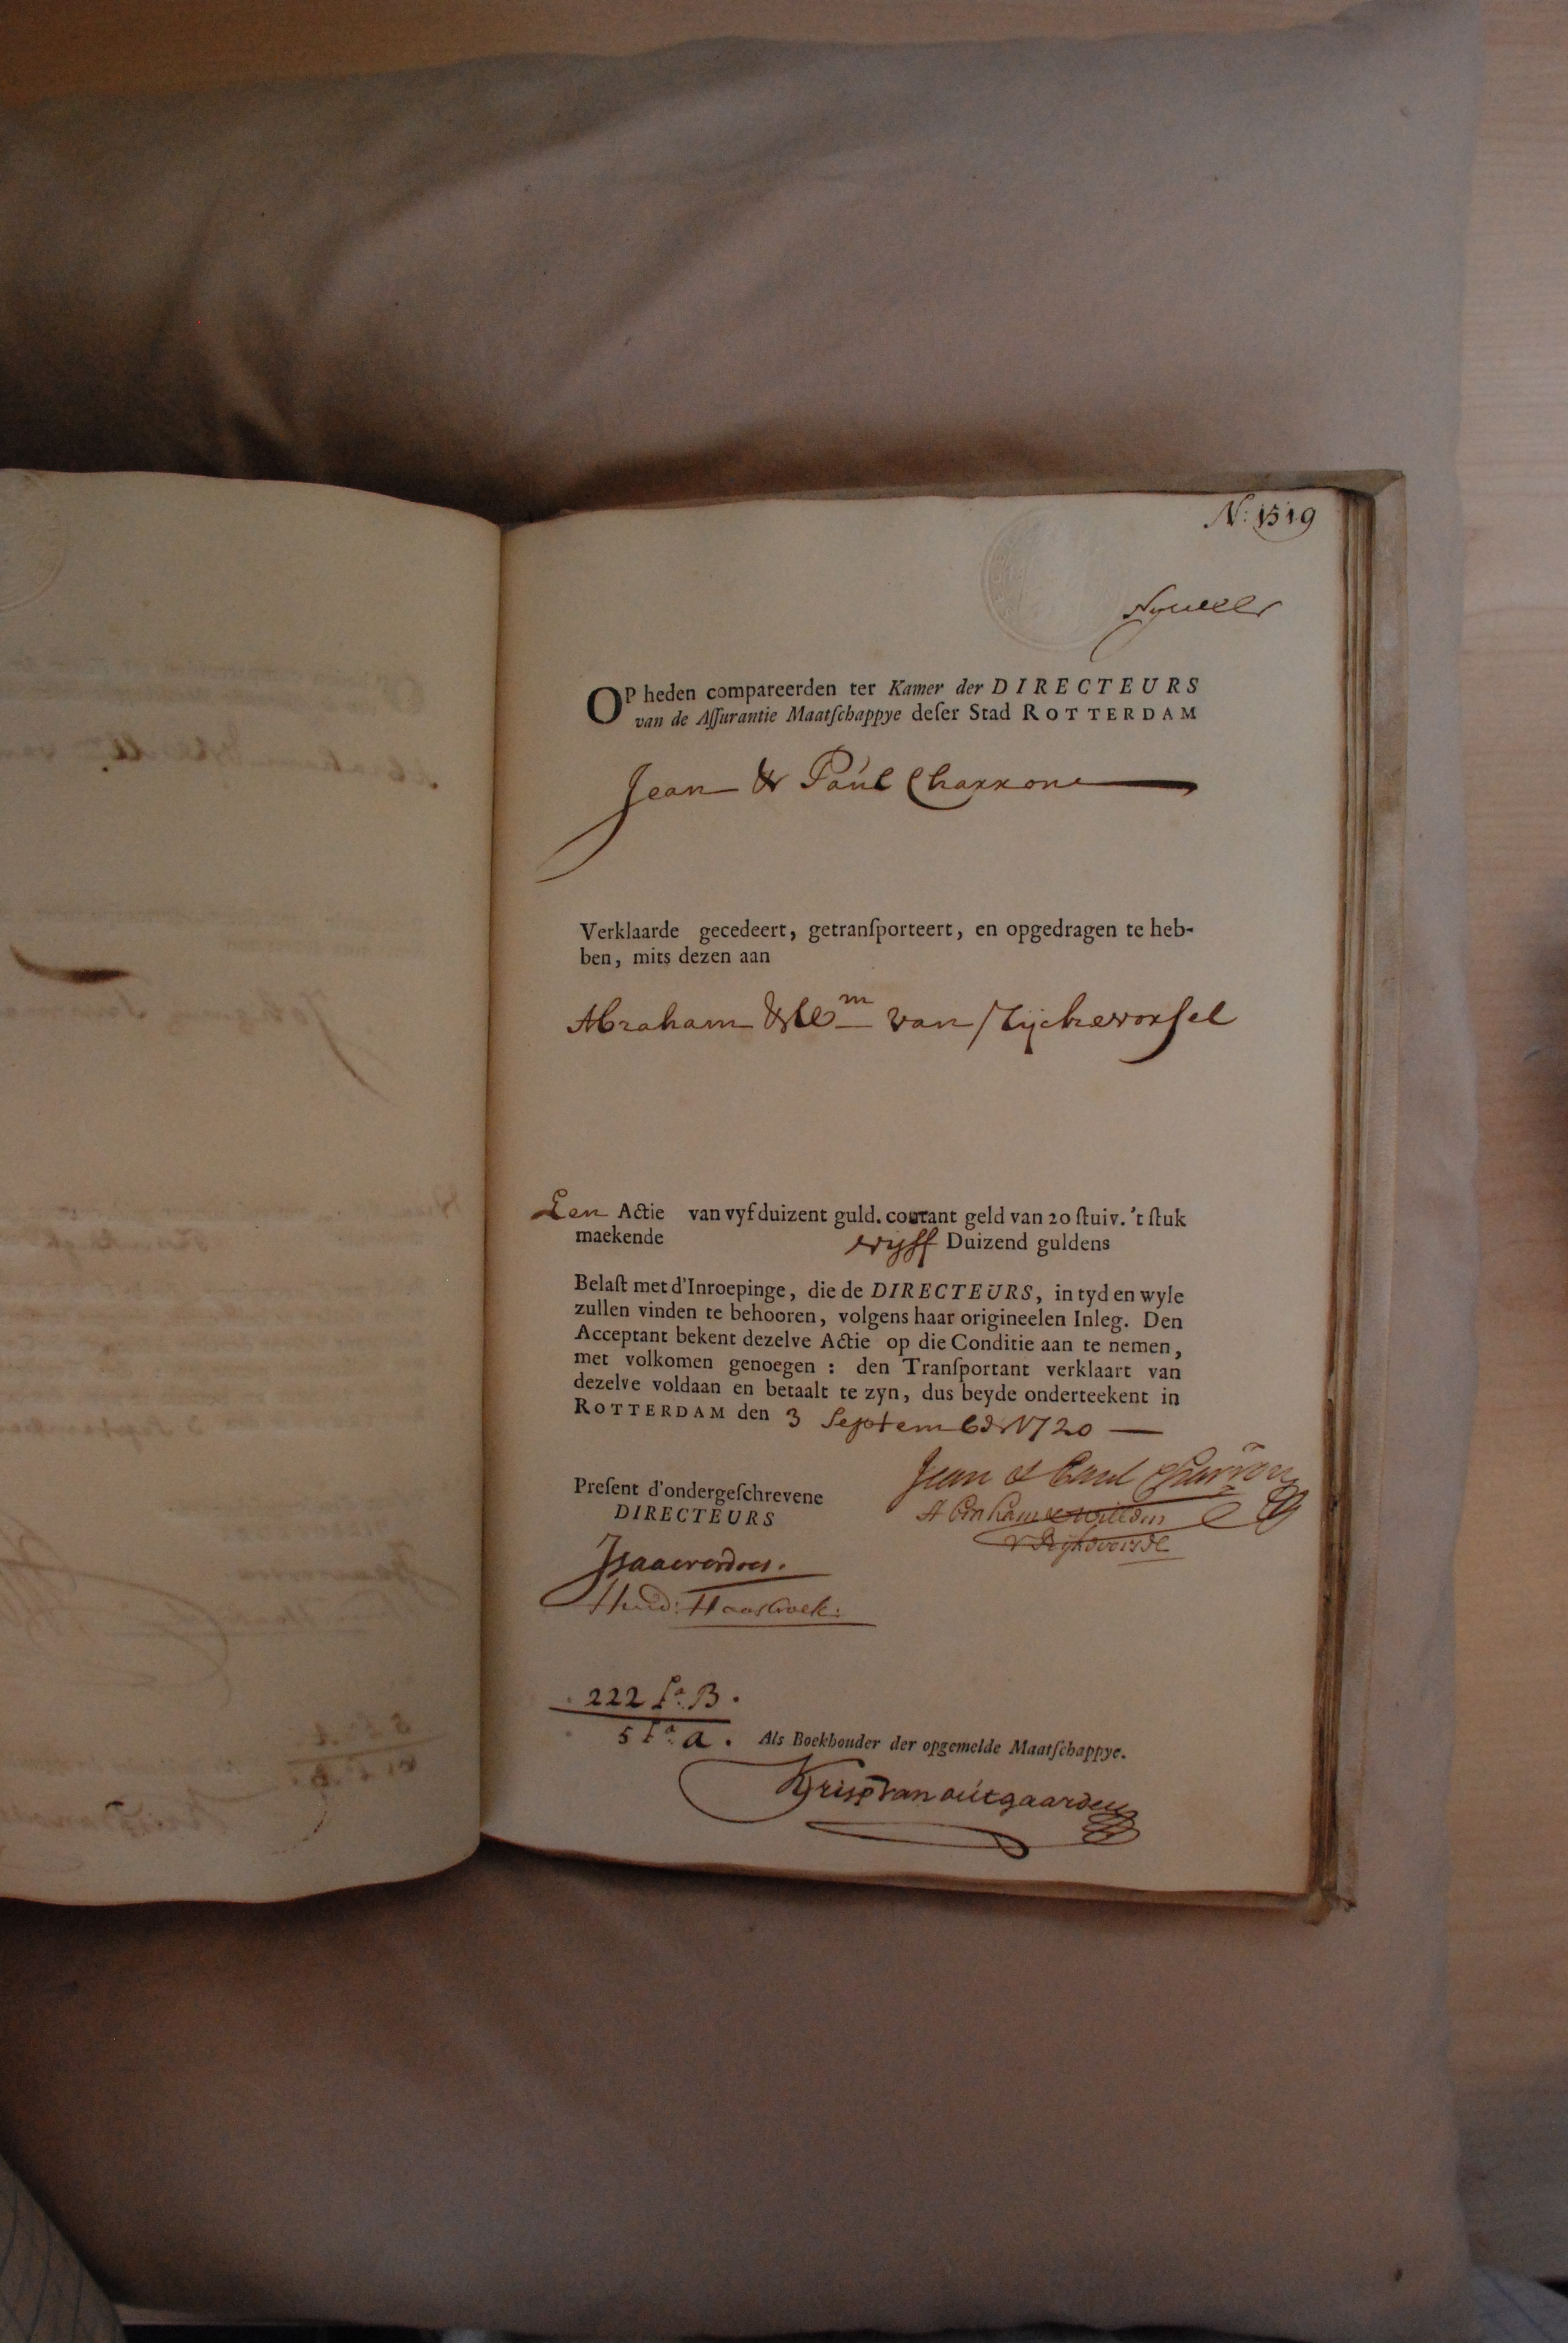 N: 1519
OP heden compareerden ter Kamer der DIRECTEURS
van de Aſſurantie Maatſchappye deſer Stad ROTTERDAM
Jean & Paúl Charron
Verklaarde gecedeert, getranſporteert, en opgedragen te heb-
ben, mits dezen aan
Abraham & Wm van Rijckevorsel
Een Actie van vyf duizent guld. courant geld van 20 ſtuiv. 't ſtuk
maekende vyff Duizend guldens
Belaſt met d'Inroepinge, die de DIRECTEURS, in tyd en wyle
zullen vinden te behooren, volgens haar origineelen Inleg. Den
Acceptant bekent dezelve Actie op die Conditie aan te nemen,
met volkomen genoegen : den Tranſportant verklaart van
dezelve voldaan en betaalt te zyn, dus beyde onderteekent in
ROTTERDAM den 3 September 1720
Jean & Paul Charron
Preſent d'ondergeſchrevene
DIRECTEURS
Abraham & Willem
v Rijckevorsel
222 fo. B.
5 fo. a. Als Boekhouder der opgemelde Maatſchappye.